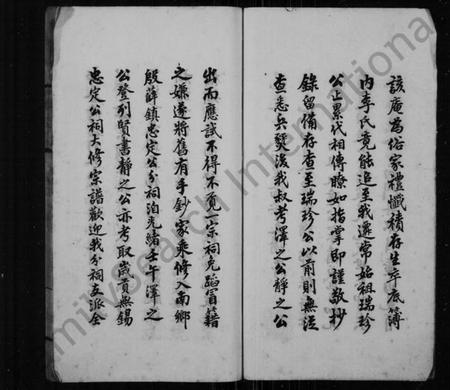 該庵為俗家禮懺積存生卒底簿
內李氏竟能追至我遷常始祖瑞珍
公上累代相傳瞭如指掌即謹敬抄
錄留備存查至瑞珍公以前則無從
查悉兵燹後我叔考澤之公靜之公
出而應試不得不須一宗祠免蹈冒籍
之嫌遂將舊有手鈔家乘修入南鄉
殷薛鎮忠定公分祠洎光緒壬午澤之
公登列賢書靜之公亦考取歲貢無錫
忠定公祠大修宗譜歡迎我分祠支派全
FamilySearch International